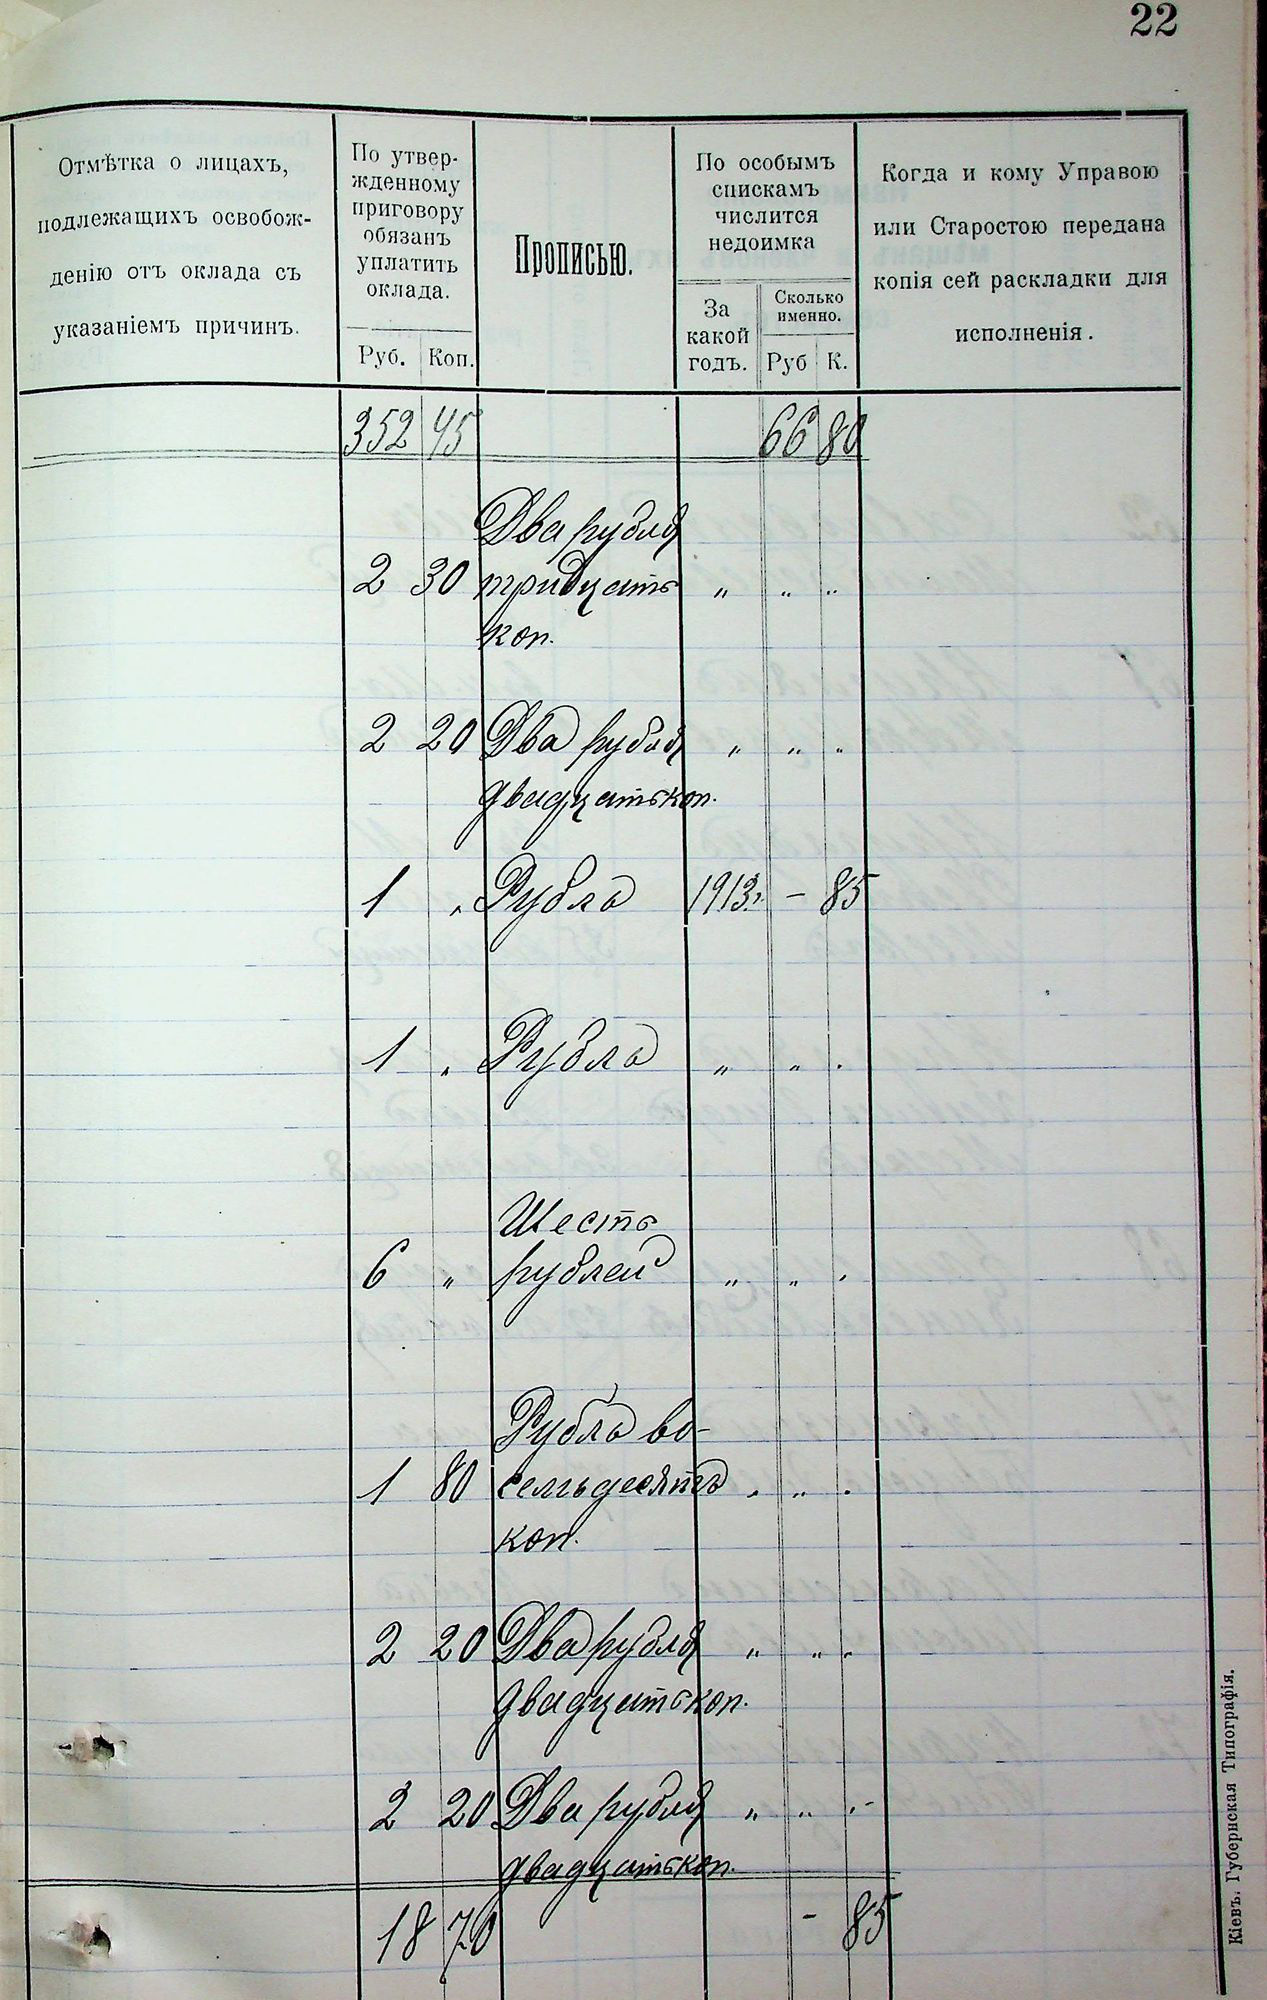 22
Отмѣтка о лицахъ,
подлежащихъ освобож-
денію отъ оклада съ
указаніемъ причинъ.
По утвер-
жденному
приговору
обязанъ
уплатить
оклада.
Руб. Коп.
Прописью.
По особымъ
спискамъ
числится
недоимка
За
какой
годъ.
Сколько
именно.
Руб К.
Когда и кому Управою
или Старостою передана
копія сей раскладки для
исполненія.
352 45 66 80
Два рубля
2 30 тридцать " " "
коп.
2 20 Два рубля " " "
двадцать коп.
1 " Рубль 1913г. - 85
1 " Рубль " " "
Шесть
6 " рублей " " "
Рубль во-
1 80 семьдесятъ " " "
коп.
2 20 Два рубля " " "
двадцать коп.
2 20 Два рубля " " "
двадцать коп.
18 70 - 85
Кіевъ. Губернская Типографія.